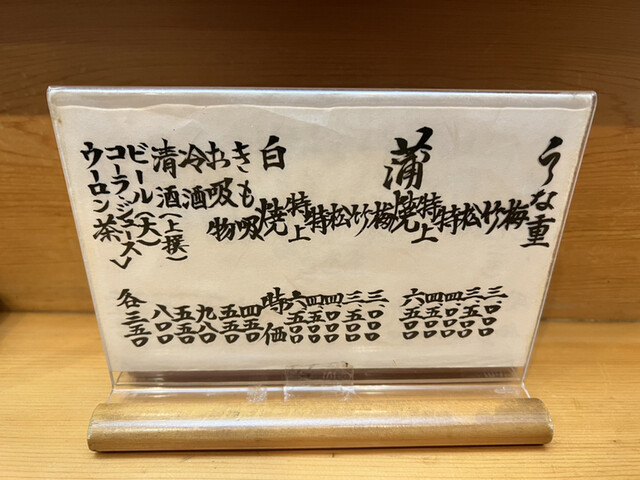 うな重
梅 三、〇〇〇
竹 三、五〇〇
松 四、〇〇〇
特 四、五〇〇
特上 六、五〇〇
蒲焼
梅 三、〇〇〇
竹 三、五〇〇
松 四、〇〇〇
特 四、五〇〇
特上 六、五〇〇
白焼 時価
きも吸 四五〇
お吸物 五五〇
冷酒 九八〇
清酒(上撰) 五五〇
ビール(大) 八〇〇
コーラ・ジュース
ウーロン茶 各三五〇